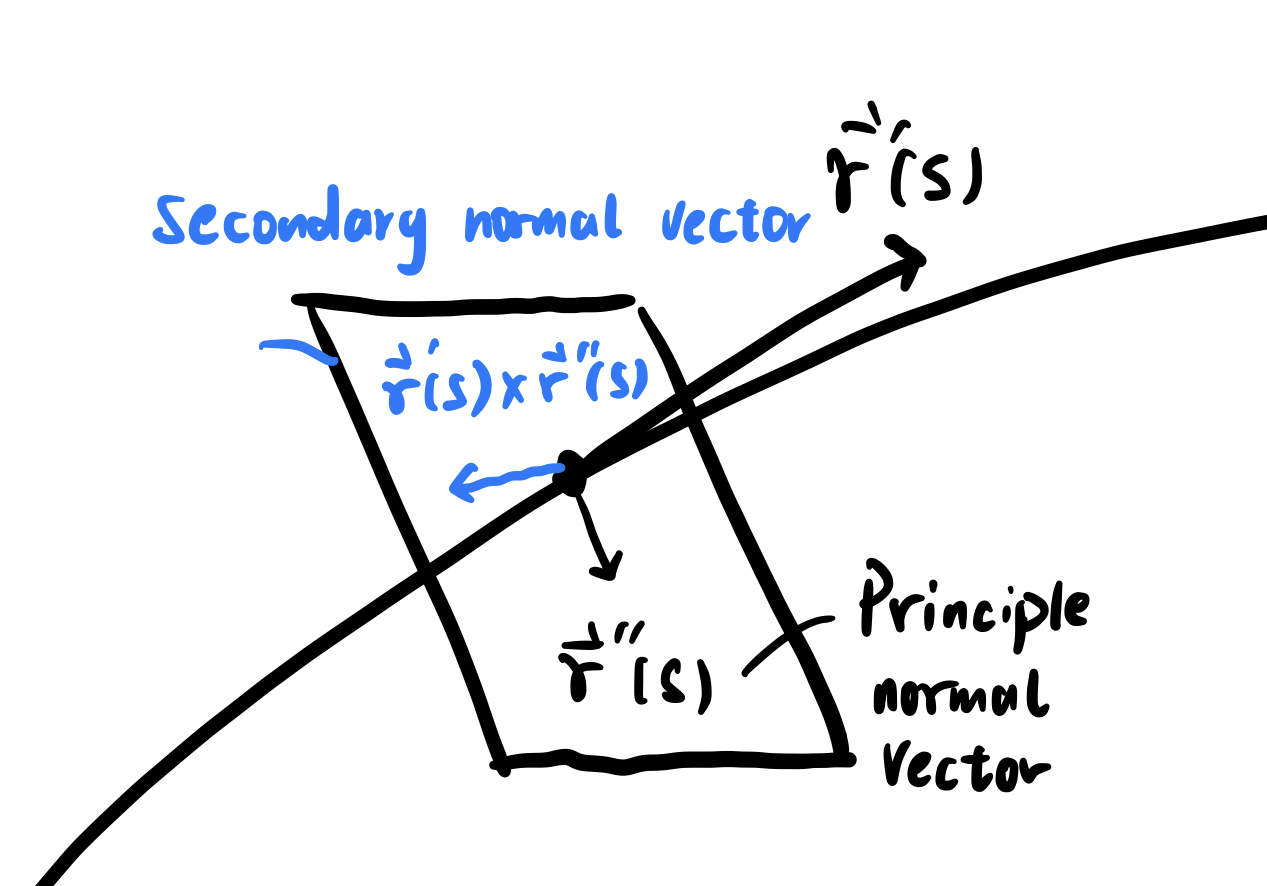 r⃗'(s)
Secondary normal vector
r⃗'(s) × r⃗''(s)
r⃗''(s)
Principle
normal
vector